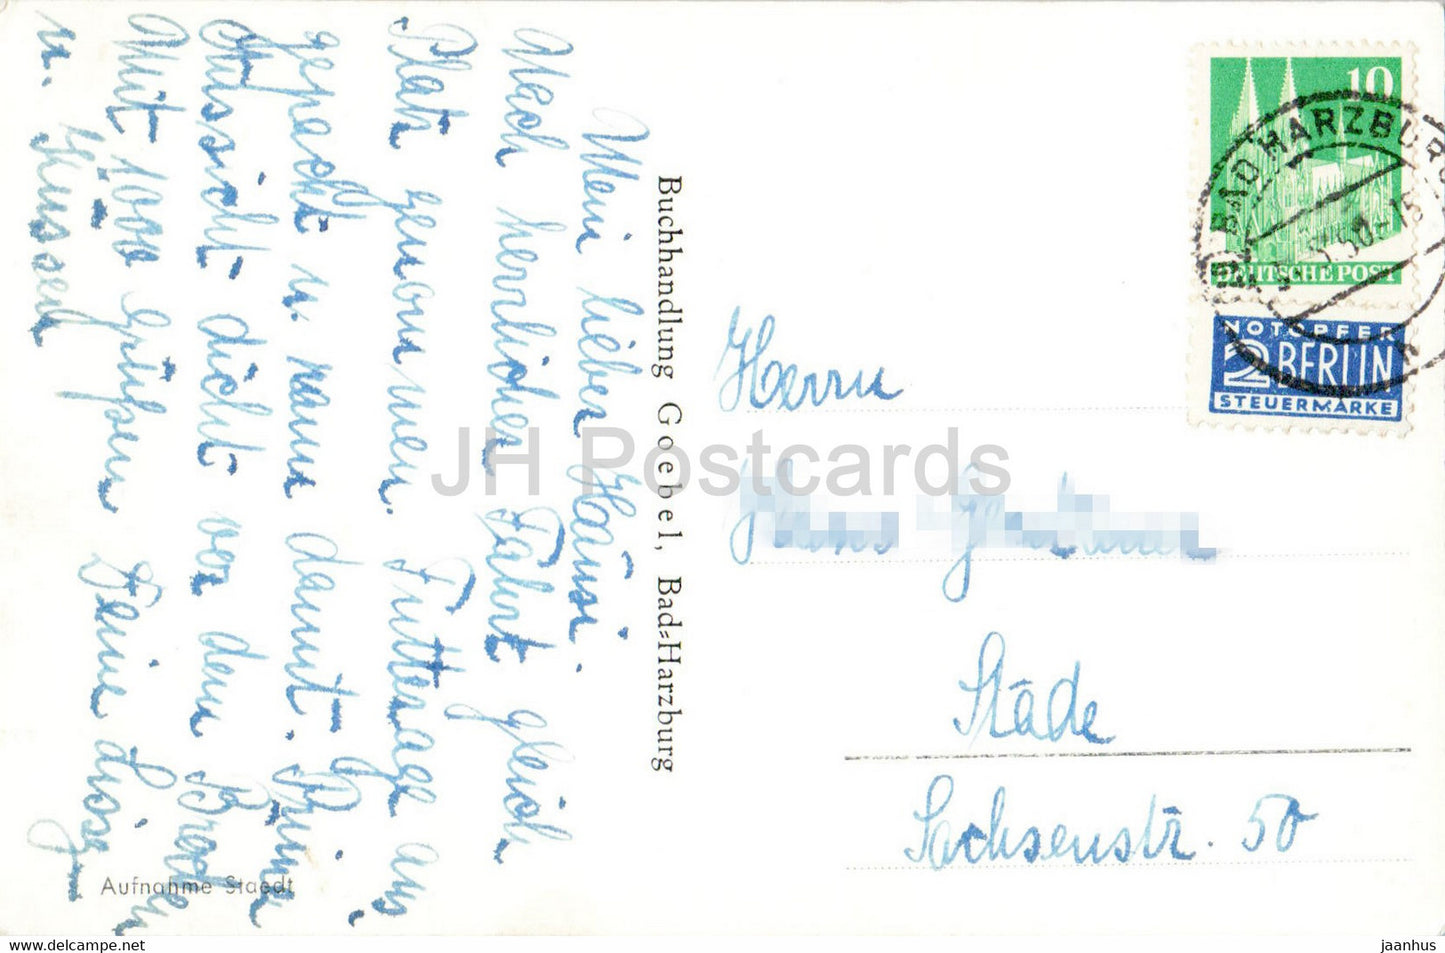 Mein lieber Hausi.
Nach herrlicher Fahrt gleich
Platz genommen. Futterage aus
gepackt u. nann damit. Prima
Aussicht dicht vor dem Brocken
Mit 1000 Grüßen Deine
u. Küssen
Aufnahme Staedt
Buchhandlung Goebel, Bad-Harzburg
10
DEUTSCHE POST
BAD HARZBURG
NOTOPFER
2 BERLIN
STEUERMARKE
Herrn
Hans
Stade
Sachsenstr. 50
JH Postcards
www.delcampe.net
jaanhus